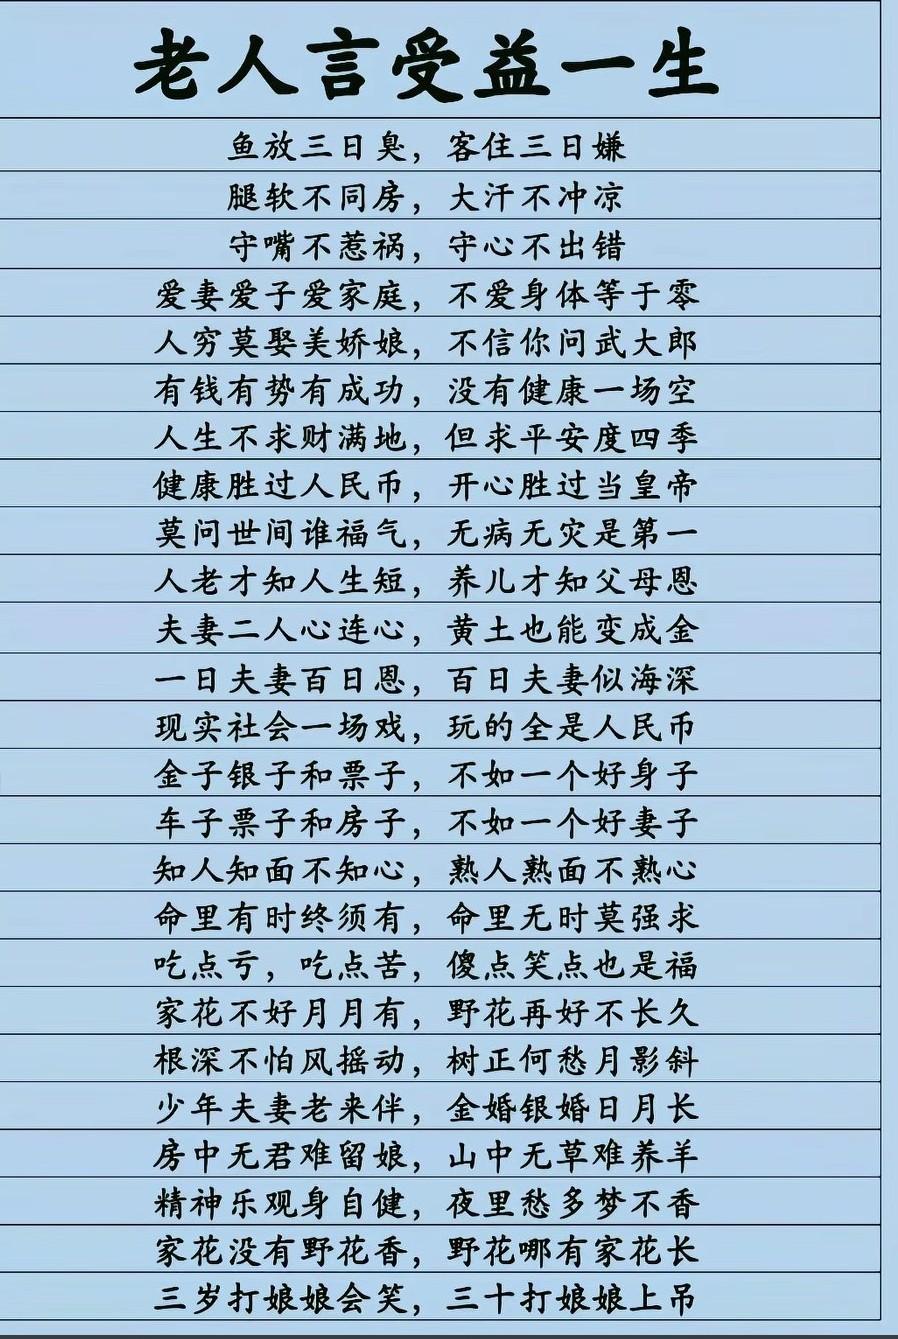 老人言受益一生
鱼放三日臭，客住三日嫌
腿软不同房，大汗不冲凉
守嘴不惹祸，守心不出错
爱妻爱子爱家庭，不爱身体等于零
人穷莫娶美娇娘，不信你问武大郎
有钱有势有成功，没有健康一场空
人生不求财满地，但求平安度四季
健康胜过人民币，开心胜过当皇帝
莫问世间谁福气，无病无灾是第一
人老才知人生短，养儿才知父母恩
夫妻二人心连心，黄土也能变成金
一日夫妻百日恩，百日夫妻似海深
现实社会一场戏，玩的全是人民币
金子银子和票子，不如一个好身子
车子票子和房子，不如一个好妻子
知人知面不知心，熟人熟面不熟心
命里有时终须有，命里无时莫强求
吃点亏，吃点苦，傻点笑点也是福
家花不好月月有，野花再好不长久
根深不怕风摇动，树正何愁月影斜
少年夫妻老来伴，金婚银婚日月长
房中无君难留娘，山中无草难养羊
精神乐观身自健，夜里愁多梦不香
家花没有野花香，野花哪有家花长
三岁打娘娘会笑，三十打娘娘上吊